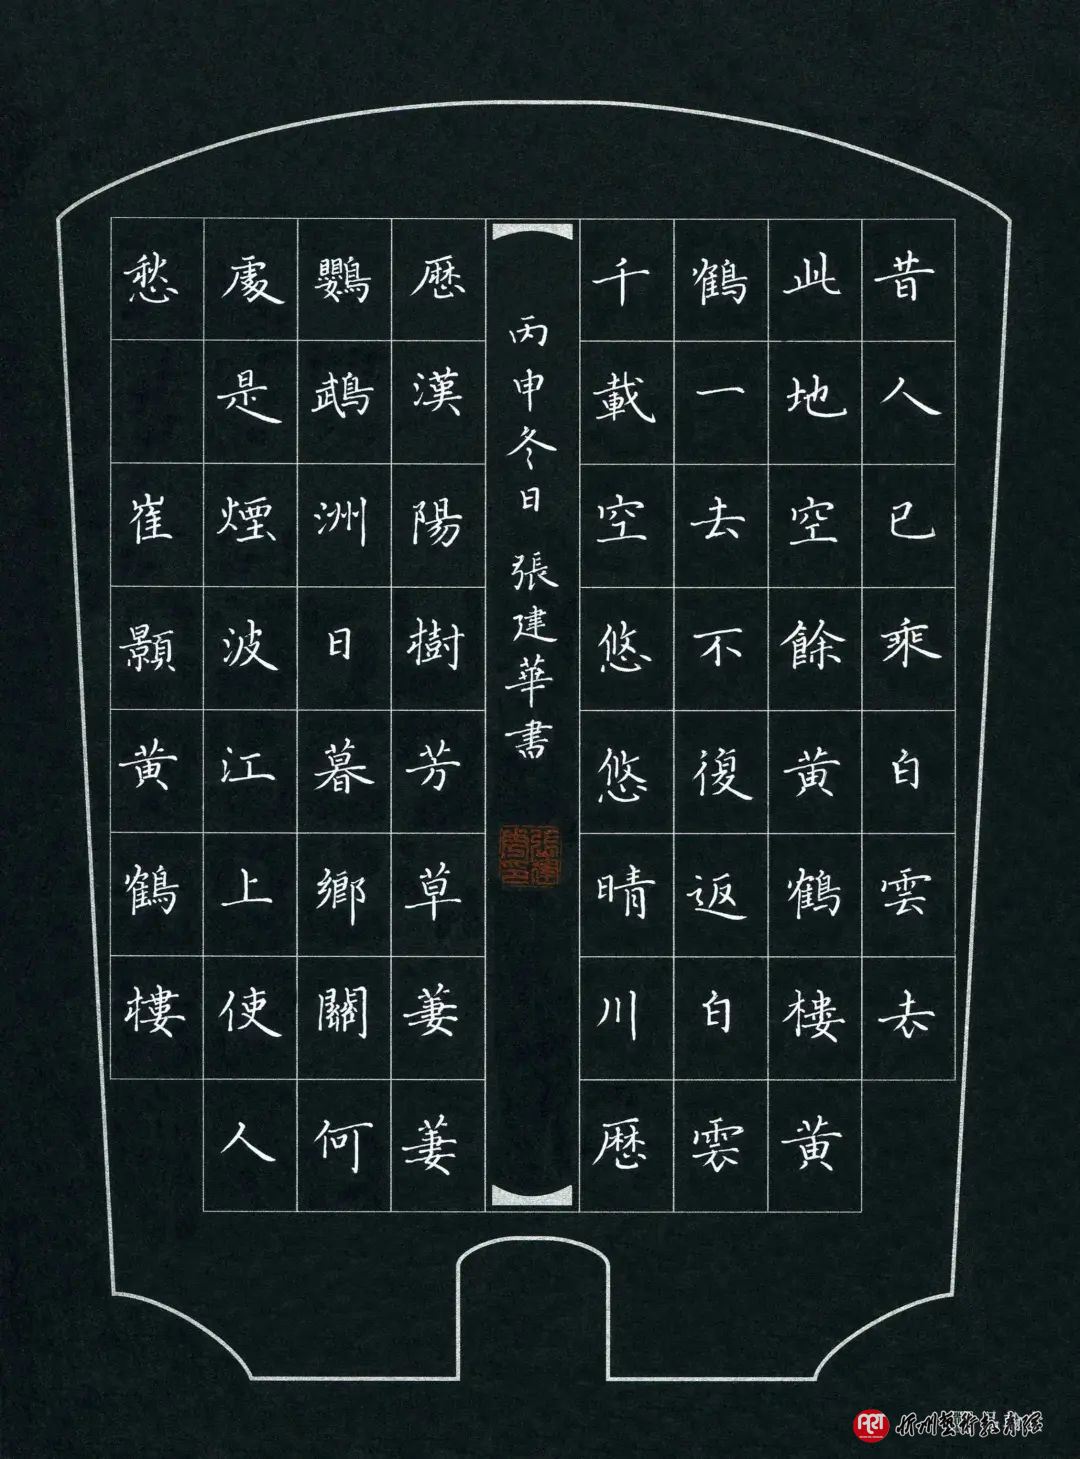 昔人已乘白雲去
此地空餘黄鶴樓黄
鶴一去不復返白雲
千載空悠悠晴川歷
丙申冬日 張建華書
張建華印
歷漢陽樹芳草萋萋
鸚鵡洲日暮鄉關何
處是煙波江上使人
愁 崔顥黄鶴樓
ART